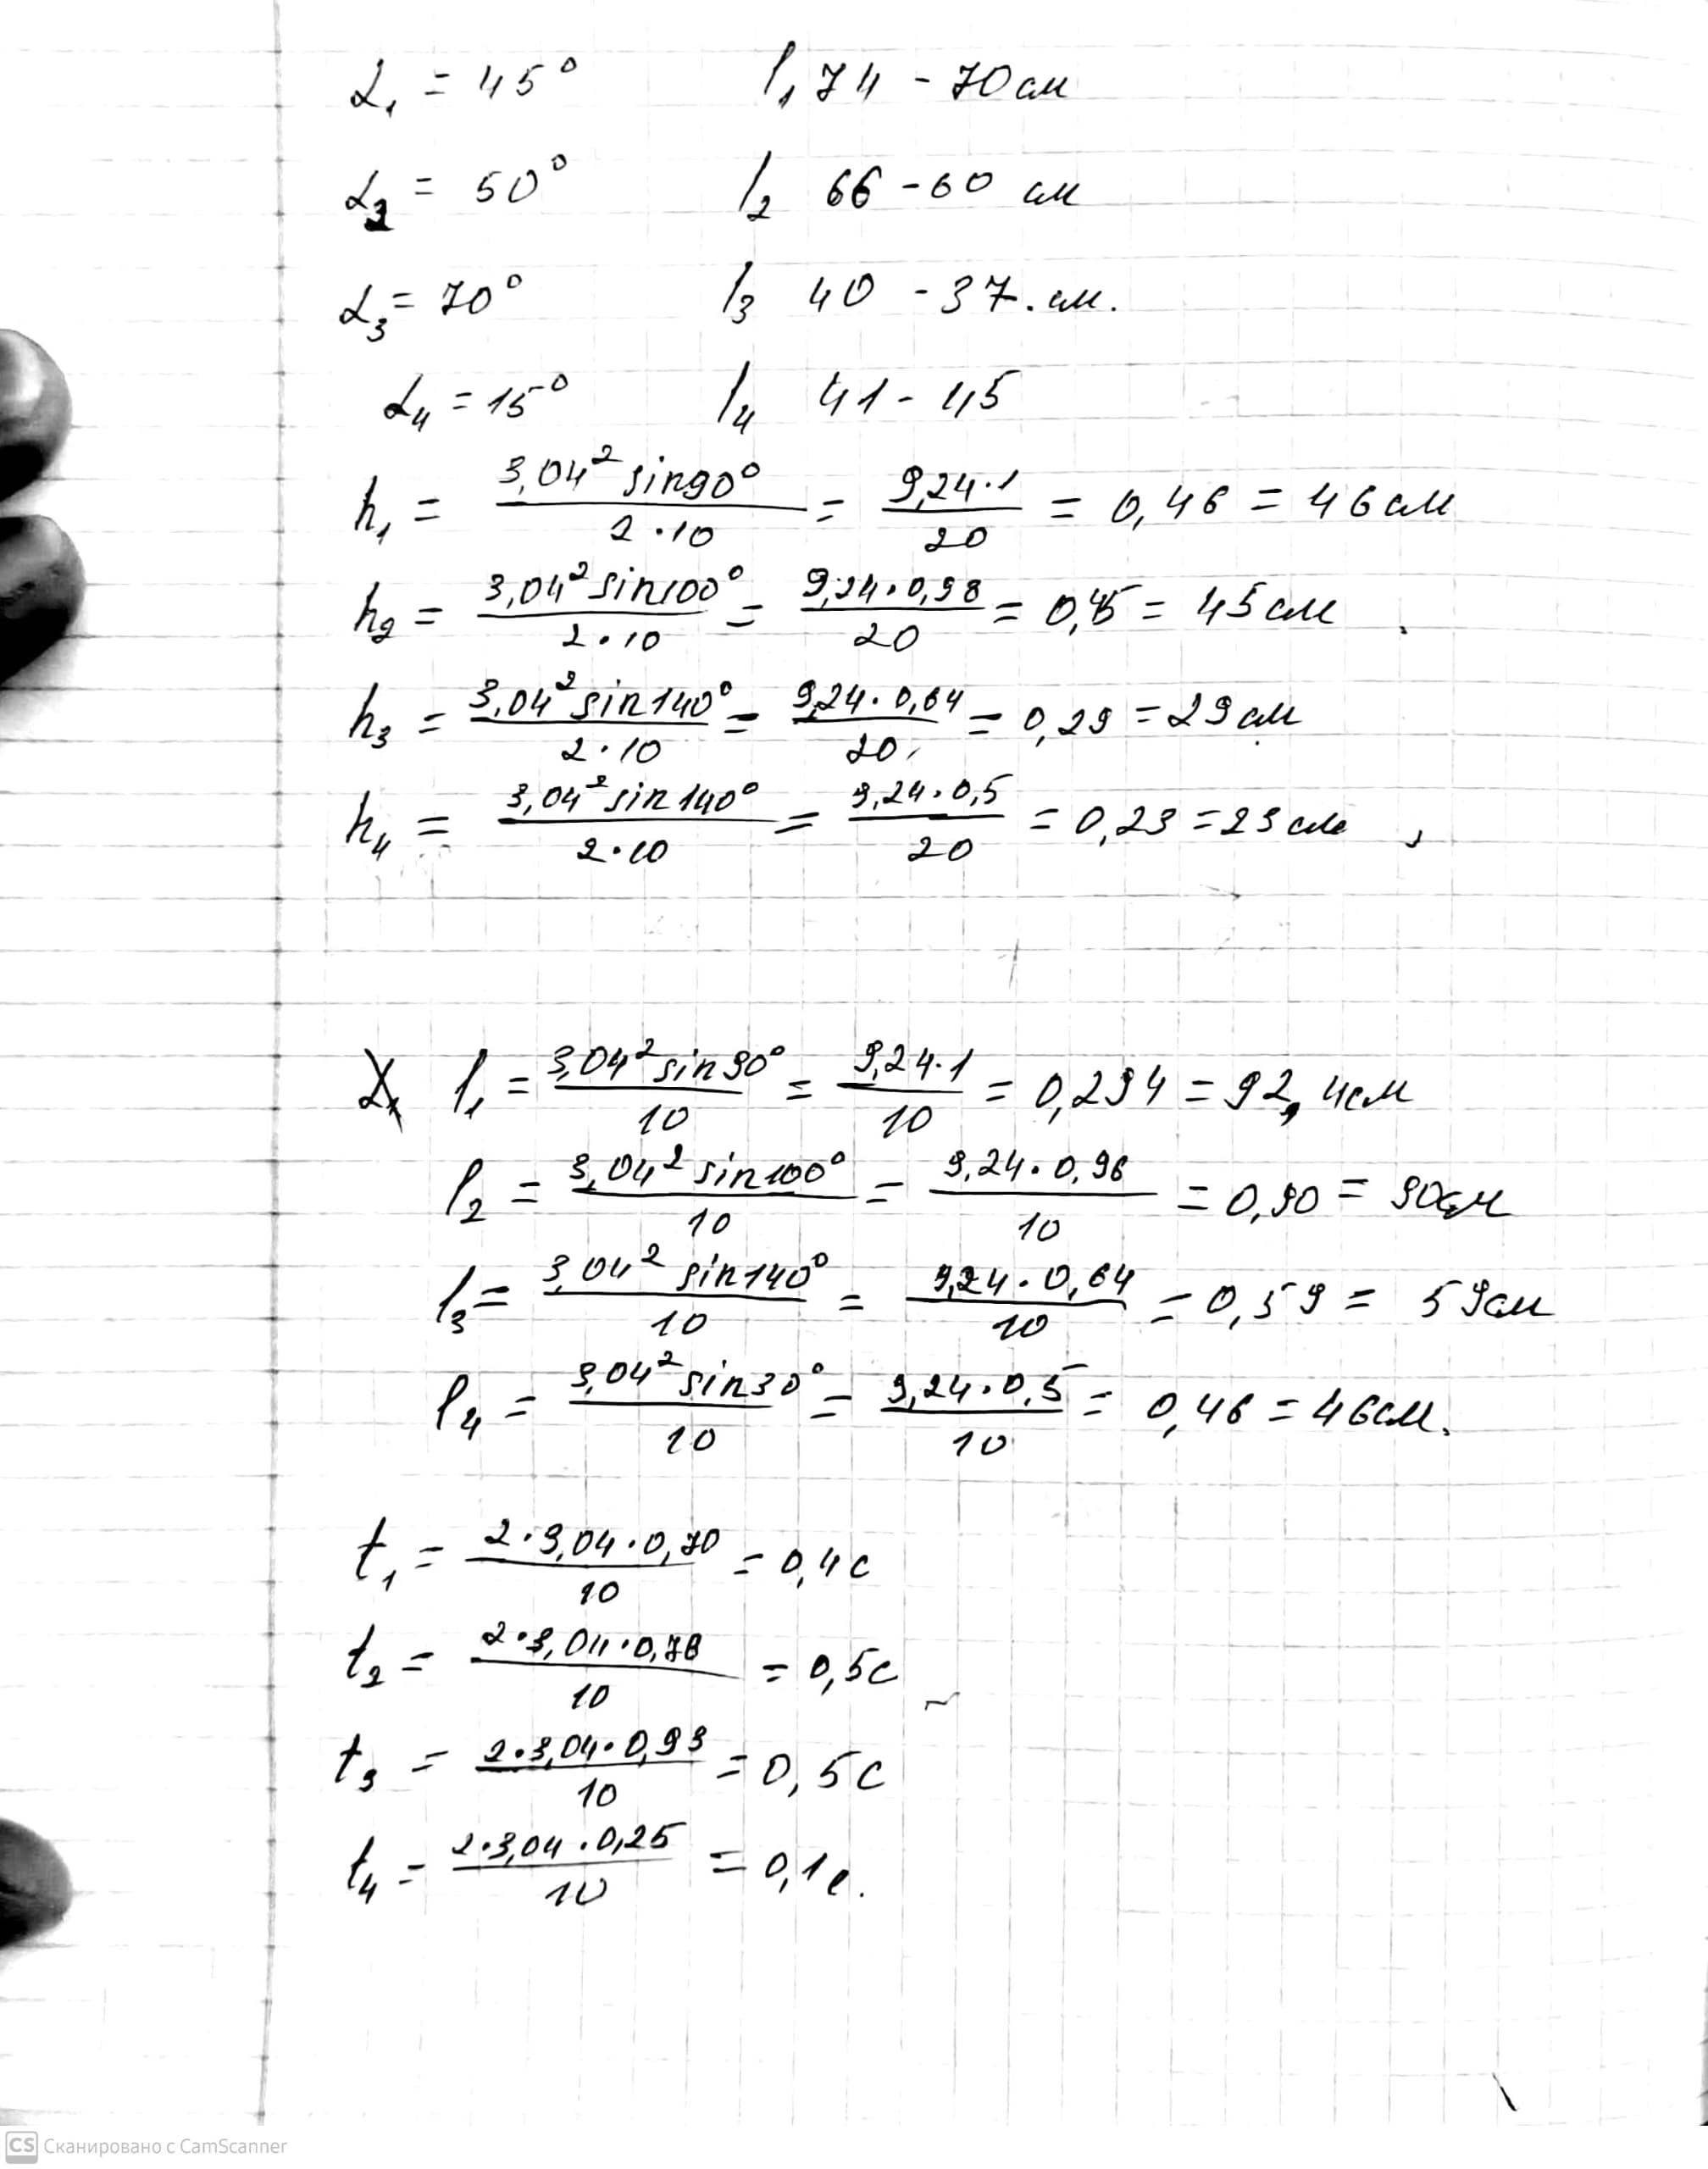 α₁ = 45° l₁ 74 - 70 см
α₂ = 50° l₂ 66 - 60 см
α₃ = 70° l₃ 40 - 37. см.
α₄ = 15° l₄ 41 - 45
h₁ = 3,04² sin90° / 2·10 = 9,24·1 / 20 = 0,46 = 46 см
h₂ = 3,04² sin100° / 2·10 = 9,24·0,98 / 20 = 0,45 = 45 см
h₃ = 3,04² sin140° / 2·10 = 9,24·0,64 / 20 = 0,29 = 29 см
h₄ = 3,04² sin140° / 2·10 = 9,24·0,5 / 20 = 0,23 = 23 см
l₁ = 3,04² sin90° / 10 = 9,24·1 / 10 = 0,294 = 92,4см
l₂ = 3,04² sin100° / 10 = 9,24·0,98 / 10 = 0,90 = 90см
l₃ = 3,04² sin140° / 10 = 9,24·0,64 / 10 = 0,59 = 59см
l₄ = 3,04² sin30° / 10 = 9,24·0,5 / 10 = 0,46 = 46см.
t₁ = 2·3,04·0,70 / 10 = 0,4с
t₂ = 2·3,04·0,78 / 10 = 0,5с
t₃ = 2·3,04·0,93 / 10 = 0,5с
t₄ = 2·3,04·0,25 / 10 = 0,1с.
CS Сканировано с CamScanner